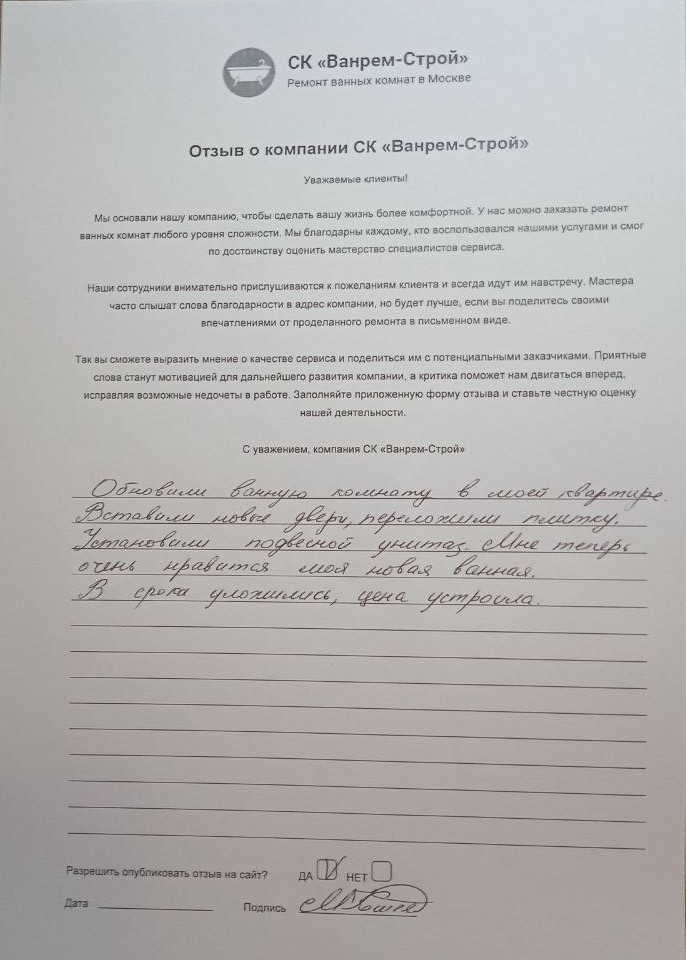 СК «Ванрем-Строй»
Ремонт ванных комнат в Москве
Отзыв о компании СК «Ванрем-Строй»
Уважаемые клиенты!
Мы основали нашу компанию, чтобы сделать вашу жизнь более комфортной. У нас можно заказать ремонт
ванных комнат любого уровня сложности. Мы благодарны каждому, кто воспользовался нашими услугами и смог
по достоинству оценить мастерство специалистов сервиса.
Наши сотрудники внимательно прислушиваются к пожеланиям клиента и всегда идут им навстречу. Мастера
часто слышат слова благодарности в адрес компании, но будет лучше, если вы поделитесь своими
впечатлениями от проделанного ремонта в письменном виде.
Так вы сможете выразить мнение о качестве сервиса и поделиться им с потенциальными заказчиками. Приятные
слова станут мотивацией для дальнейшего развития компании, а критика поможет нам двигаться вперед,
исправляя возможные недочеты в работе. Заполняйте приложенную форму отзыва и ставьте честную оценку
нашей деятельности.
С уважением, компания СК «Ванрем-Строй»
Обновили ванную комнату в моей квартире.
Вставили новые двери, переложили плитку.
Установили подвесной унитаз. Мне теперь
очень нравится моя новая ванная.
В сроки уложились, цена устроила.
Разрешить опубликовать отзыв на сайт? ДА НЕТ
Дата Подпись